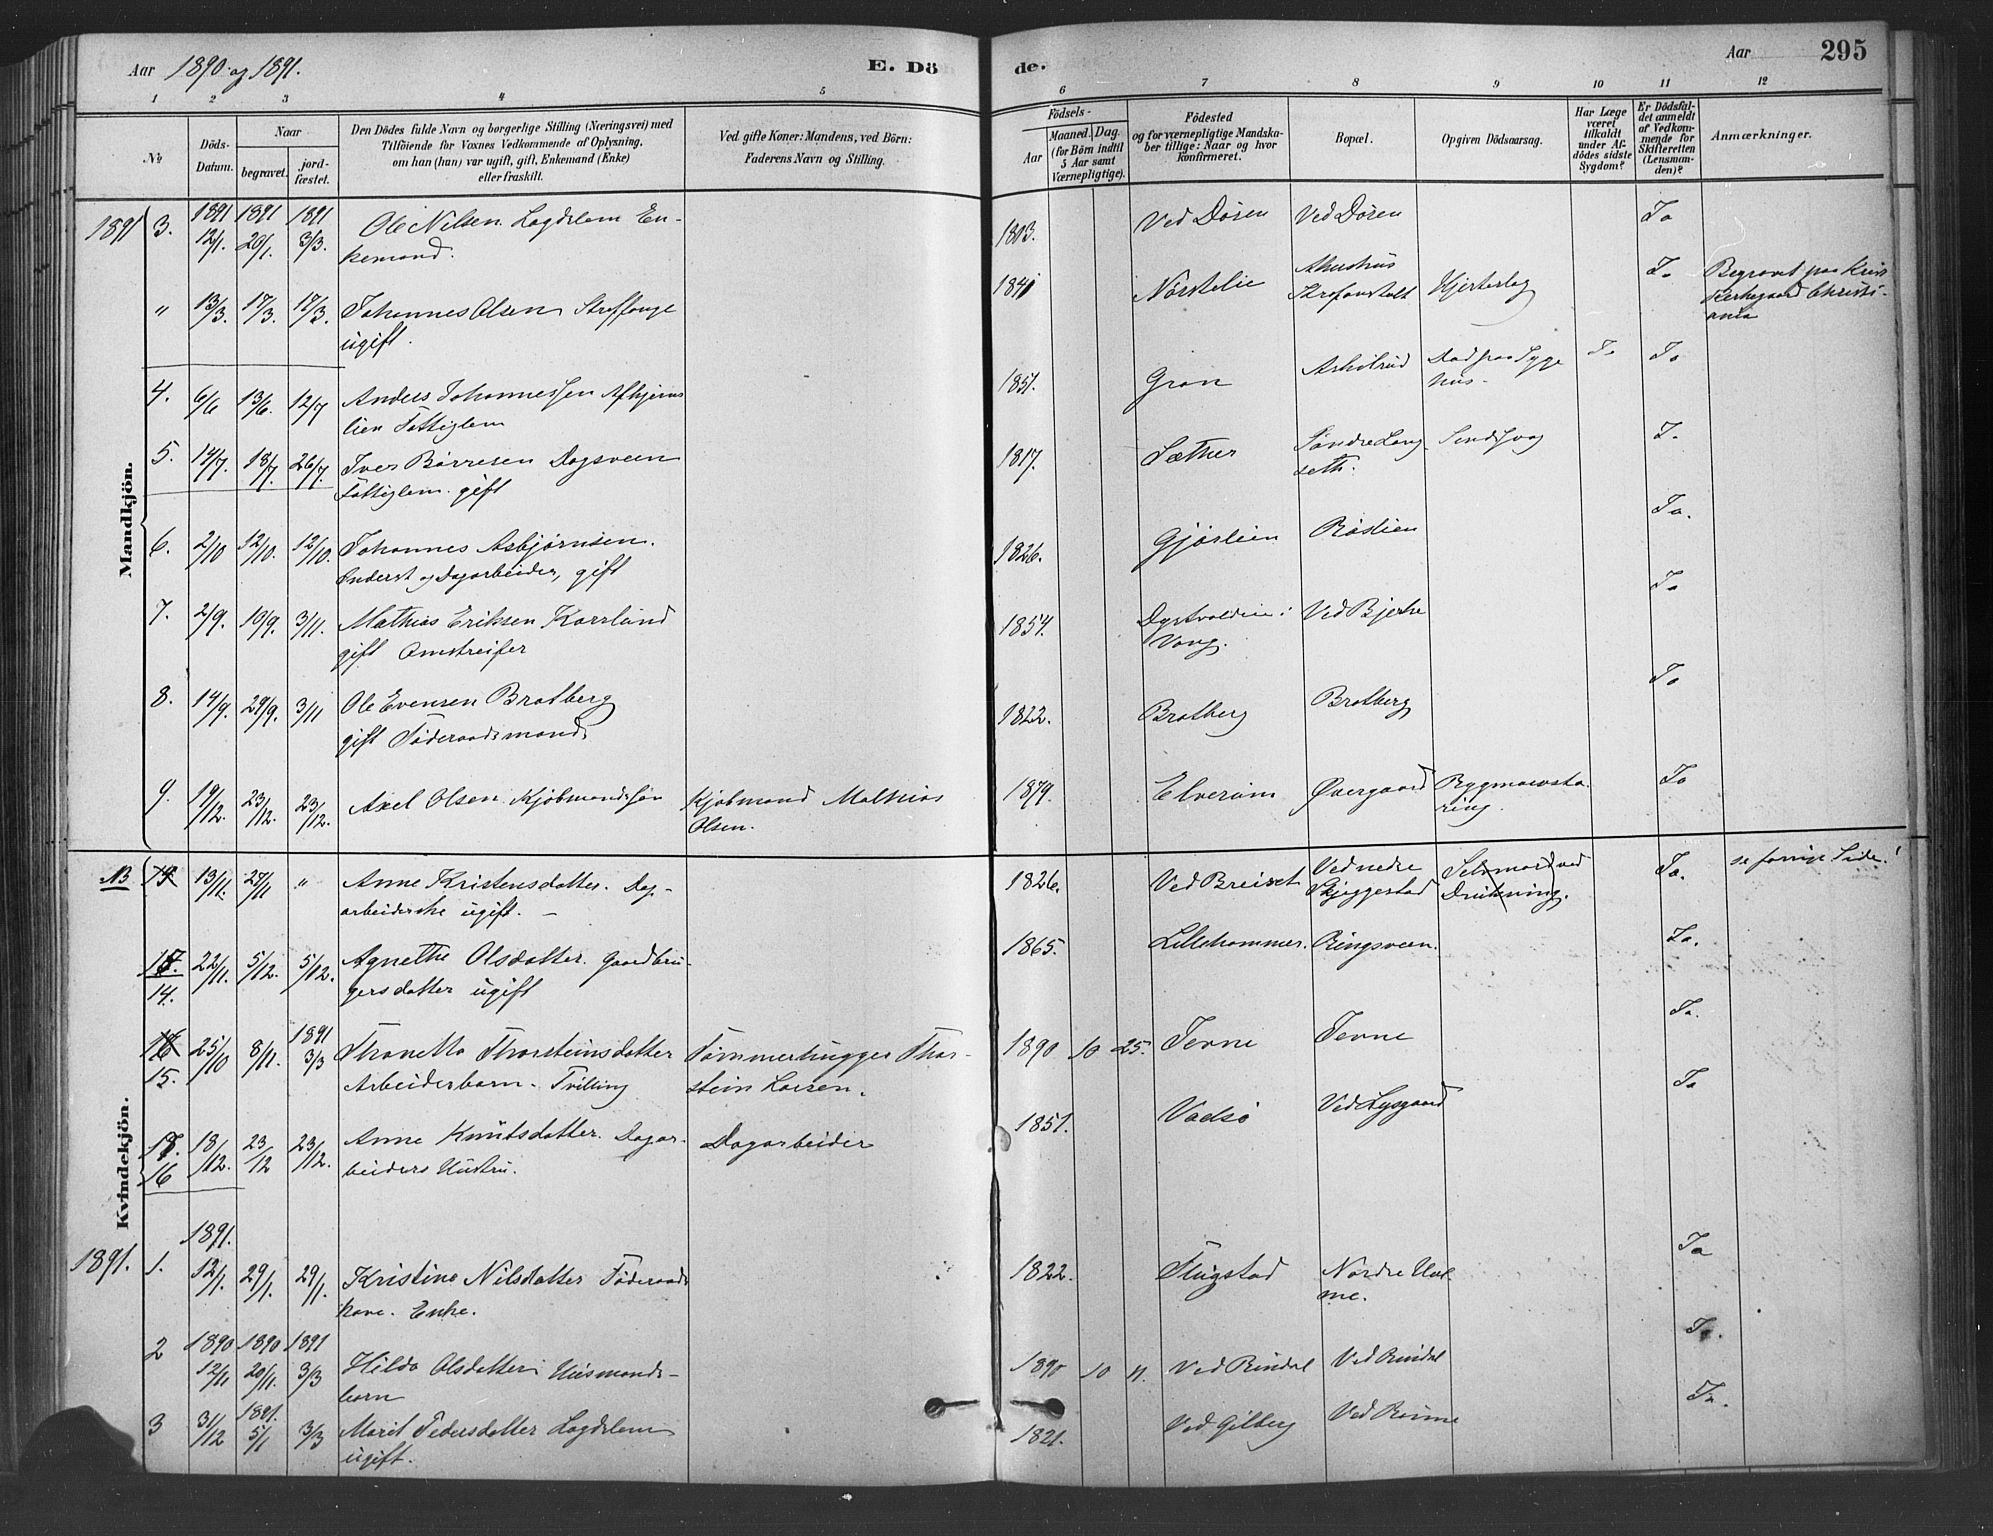 Aar 1890 og 1891. E. Dö de. Aar 295
1 2 3 4 5 6 7 8 9 10 11 12
№
Döds-Datum.
Naar
begravet.
jord-fæstet.
Den Dödes fulde Navn og borgerlige Stilling (Næringsvei) med
Tilföiende for Voxnes Vedkommende af Oplysning,
om han (han) var ugift, gift, Enkemand (Enke)
eller fraskilt.
Ved gifte Koner: Mandens, ved Börn:
Faderens Navn og Stilling.
Födsels-
Aar
Maaned. Dag.
(for Börn indtil
5 Aar samt
Værnepligtige).
Födested
og for værnepligtige Mandska-
ber tillige: Naar og hvor
konfirmeret.
Bopæl.
Opgiven Dödsaarsag.
Har Læge
været
tilkaldt
under Af-
dödes sidste
Sygdom?
Er Dödsfal-
det anmeldt
af Vedkom-
mende for
Skifteretten
(Lensman-
den)?
Anmærkninger.
Mandkjön.
1891 3. 1891 12/1. 1891 20/1. 1891 3/3. Ole Nilsen. Lagdslem En-
kemand. 1803. Ved Døsen Ved Døsen Ja
" 13/3. 17/3. 17/3. Johannes Olsen Straffange
ugift. 1841 Norstelie Akershus
Strafanstalt Hjerteslag Ja Begravet paa Krist
Kirkegaard Christi-
ania
4. 6/6 13/6. 12/7 Anders Johannessen
lien Fattiglem 1851. Gran Død paa Syge
hus. Ja Ja
5. 14/7. 18/7. 26/7. Iver Børresen Dagsveen
Fattiglem. gift 1817. Sæther Søndre Lang
seth. Ja
6. 2/10 12/10. 12/10. Johannes Asbjørnsen.
Inderst og Dagarbeider, gift 1826. Gjørlien Røslien Ja.
7. 2/9. 10/9. 3/11. Mathias Eriksen Karrlund
gift Omstreifer 1854. i
Vang. Ved Bjerke Ja
8. 14/9. 29/9. 3/11 Ole Evensen Bratberg
gift Føderaadsmand 1822. Bratberg Bratberg Ja
9. 19/12. 23/12. 23/12. Axel Olsen Kjøbmandssøn Kjøbmand Mathias
Olsen. 1879. Elverum Øvergaard Rygmarvsta
ring Ja
Kvindekjön.
NB 13/11. 27/11 " Anne Kristensdatter. Dag-
arbeiderske ugift. — 1826. Ved Breiset Ved nedre
Skjeggestad Selvmord ved
Drukning. Ja. se forrige Side!
14. 22/11. 5/12. 5/12. Agnethe Olsdatter. Gaardbru-
gersdatter ugift 1865. Lillehammer. Ringsveen. Ja.
15. 25/10 8/11. 1891 3/3 Thonette Thorsteinsdatter
Arbeiderbarn. Tvilling Tømmerhugger Thor-
stein Larsen. 1890 10 25. Terne Terne Ja.
16 18/12. 23/12 23/12. Anne Knutsdatter. Dagar-
beiders Hustru. Dagarbeider 1851. Vadsø Ved Lysgaard Ja
1891.
1891. 1. 12/1. 29/1. 29/1. Kristine Nilsdatter Føderaads
kone. Enke. 1822. Flugstad Nordre Hol
me. Ja
2 1890 12/11 1890 20/11. 1891 3/3 Hilda Olsdatter Husmands-
barn 1890 10 11. Ved Rindal Ved Rindal Ja.
3 31/12 1891. 5/1 3/3 Marit Pedersdatter Lagdslem
ugift. 1821. Ved Gilberg Ved Ja.